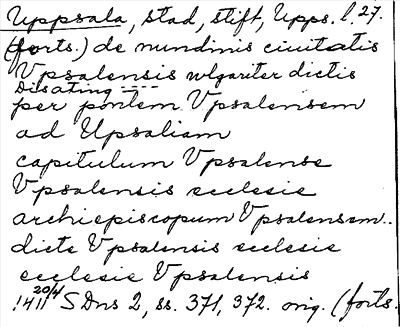 Uppsala, stad, stift, Upps. l. 27.
(forts.) de nundinis ciuitatis
Vpsalensis wlgariter dictis
Disating ----
per pontem Vpsalensem
ad Upsaliam
capitulum Vpsalense
Vpsalensis ecclesie
archiepiscopum Vpsalensem..
dicte Vpsalensis ecclesie
ecclesie Vpsalensis
1411 20/4 SDns 2, ss. 371, 372. orig. (forts.